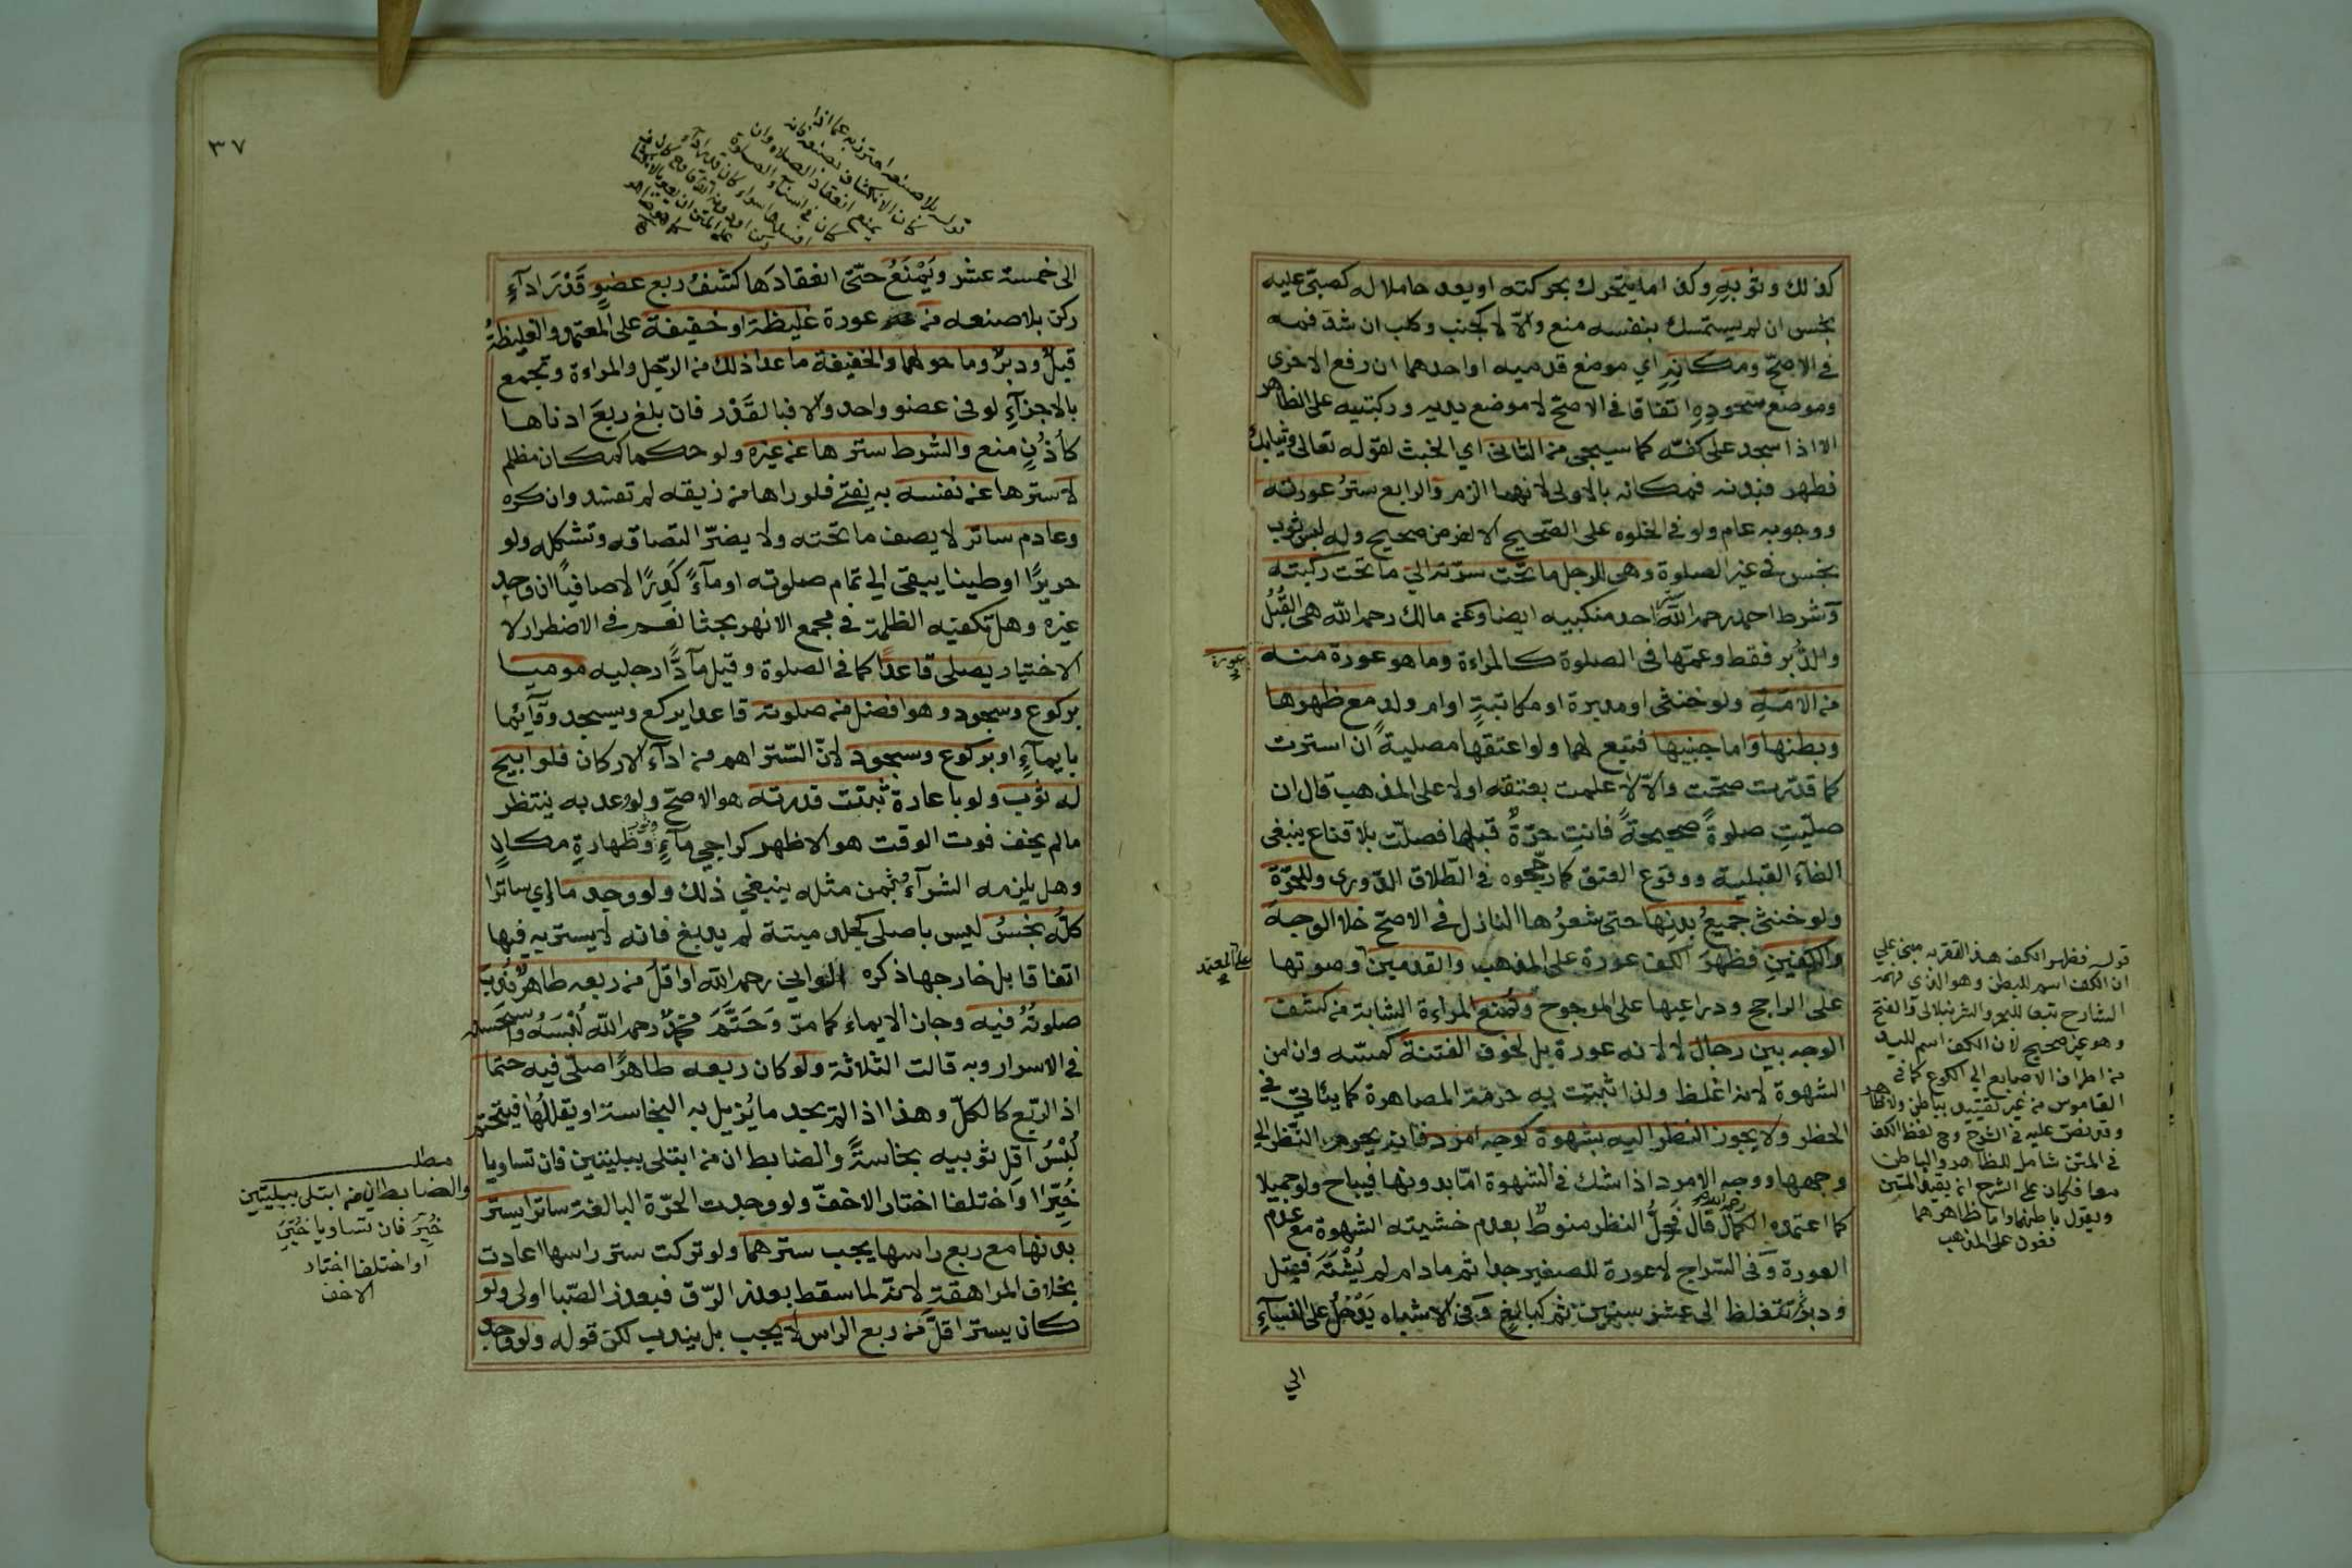 كذلك وثوبه وكذا ما يتحرك بحركته او يعد حاملا له كصبي عليه
نجس ان لم يستمسك بنفسه منع والّا لا كجنب وكلب ان شدّ فمه
في الاصحّ ومكانه اي موضع قدميه او احدهما ان رفع الاخرى
وموضع سجوده اتفاقا في الاصح لا موضع يديه وركبتيه على الظاهر
الا اذا سجد على كفّه كما سيجي من الثاني اي الخبث لقوله تعالى وثيابك
فطهر فبدنه فمكانه بالاولى لانهما الزم والرابع ستر عورته
ووجوبه عام ولو في الخلوه على الصّحيح الا لغرض صحيح وله لبس ثوب
نجس في غير الصلوة وهي للرجل ما تحت سرّته الى ما تحت ركبته
وشرط احمد رحمه الله ستر احد منكبيه ايضا وعن مالك رحمه الله هي القُبُل
والدُّبر فقط وعمّها في الصلوة كالمراءة وما هو عورة منه
عورة
من الامة ولو خنثى او مدبرة او مكاتبةٍ او ام ولدٍ مع ظهرها
وبطنها واما جنبيها فتبع لهما ولو اعتقها مصليةً ان استترت
كما قدّرت صحّت والّا لا علمت بعتقه او لا على المذهب قال ان
صلّيتِ صلوةً صحيحةً فانتِ حرّةٌ قبلها فصلّت بلا قناع ينبغي
الغآء القبلية ووقوع العتق كما رجّحوه في الطّلاق الدّوري وللحرّة
ولو خنثى جميعُ بدنها حتى شعرُها النازل في الاصحّ خلا الوجه
والكفّين فظهر الكف عورة على المذهب والقدمين وصوتها
على المعتمد
على الراجح ودراعيها على المرجوح وتمنع المراءة الشابة من كشف
الوجه بين رجال لا لانه عورة بل لخوف الفتنة كمسّه وان امن
الشهوة لانه اغلظ ولذا ثبتت به حرمة المصاهرة كما يئاتي في
الحظر ولا يجوز النظر اليه بشهوة كوجه امرد فانه يحرم النظر الى
وجهها ووجه الامرد اذا شك في الشهوة امّا بدونها فيباح ولو جميلا
كما اعتمده الكمال رحمه الله قال فحِلُّ النظر منوطٌ بعدم خشيته الشهوة مع عدم
العورة وفي السّراج لا عورة للصغير جدا ثم مادام لم يُشْتَه فقبل
ودبرٌ ثم تتغلظ الى عشر سنين ثم كبالغٍ وفي الاشباه يَدْخُل على النسآءِ
الى
قوله فظهر الكف هذا التقرير مبني على
ان الكف اسم للبطن وهو الذي فهمه
الشارح تبعا للبحر والشرنبلالي والفتح
وهو غير صحيح لان الكف اسم لليد
من اطراف الاصابع الى الكوع كما في
القاموس من غير تقييد بباطن ولا ظاهر
وقد نصّ عليه في الشرح وح لفظ الكف
في المتن شامل للظاهر والباطن
معا فكان على الشرح ان يقيد المتن
ويقول باطنهما واما ظاهرهما
فعورة على المذهب
٣٧
قوله بلا صنعه احترز به عما اذا
كان الانكشاف بصنعه فانه
يمنع انعقاد الصلاة وان
كان في اثناء الصلوة
الى خمسة عشر ويَمْنَعُ حتّى انعقادَها كشفُ ربع عضوٍ قَدْرَ ادآءِ
ركن بلا صنعه من عورة غليظة او خفيفة على المعتمد والغليظة
قبلٌ ودبرٌ وما حولهما والخفيفة ما عدا ذلك من الرّجل والمراءة وتجمع
بالاجزآءِ لو في عضو واحد والا فبالقَدْر فان بلغ ربعَ ادناها
كأُذُنٍ منع والشرط سترها عن غيره ولو حكما كمكان مظلم
لا سترها عن نفسه به يفتى فلو راها من زيقه لم تفسد وان كره
وعادم ساتر لا يصف ما تحته ولا يضرّ التصاقه وتشكله ولو
حريرًا او طينا يبقى الى تمام صلوته او مآءً كَدِرًا لا صافيًا ان وجد
غيره وهل تكفيه الظلمة في مجمع الانهر بحثا نعم في الاضطرار لا
الاختيار يصلي قاعدًا كما في الصلوة وقيل مآدًّا رجليه موميا
بركوع وسجود وهو افضل من صلوته قاعدا يركع ويسجد وقآئما
بايمآءٍ او بركوع وسجود لانّ السّتر اهم من ادآء الاركان فلو ابيح
له ثوب ولو باعارة ثبتت قدرته هو الاصحّ ولو وعد به ينتظر
ما لم يخف فوت الوقت هو الاظهر كراجي مآءٍ وطهارةِ مكانٍ
وهل يلزمه الشرآء بثمن مثله ينبغي ذلك ولو وجد ما اي ساترا
كلُّه نجسٌ ليس باصلي كجلد ميتة لم يدبغ فانه لا يستر به فيها
اتفاقا بل خارجها ذكره الواني رحمه الله او اقلُّ من ربعه طاهرٌ نُدِبَ
صلوتُهُ فيه وجاز الايماء كما مرّ وَحَتَّمَ محمّدٌ رحمه الله لُبْسَهُ واستحسنه
في الاسرار وبه قالت الثلاثة ولو كان ربعه طاهرًا صلّى فيه حتما
اذ الرّبع كالكلّ وهذا اذا لم يجد ما يُزيل به النجاسة او يقللُها فيتحتم
لُبْسُ اقلِ ثوبيه نجاسةً والضابط ان من ابتلى ببليتين فان تساويا
خُيِّرا وان اختلفا اختار الاخفّ ولو وجدت الحرّة البالغة ساترا يستر
بدنها مع ربع راسها يجب سترهما ولو تركت ستر راسها اعادت
بخلاف المراهقة لانه لما سقط بعذر الرّق فبعذر الصّبا اولى ولو
كان يستر اقلَّ من ربع الراس لا يجب بل يندب لكن قوله ولو وجد
مطلب
والضابط ان من ابتلى ببليّتين
خُيِّرَ فان تساويا خُيِّرَ
او اختلفا اختار
الاخف